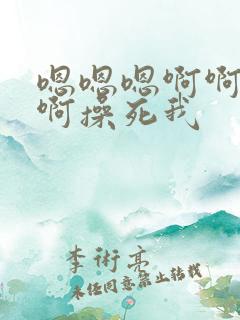 嗯嗯嗯啊啊
啊操死我
李術亮
未经同意禁止转载